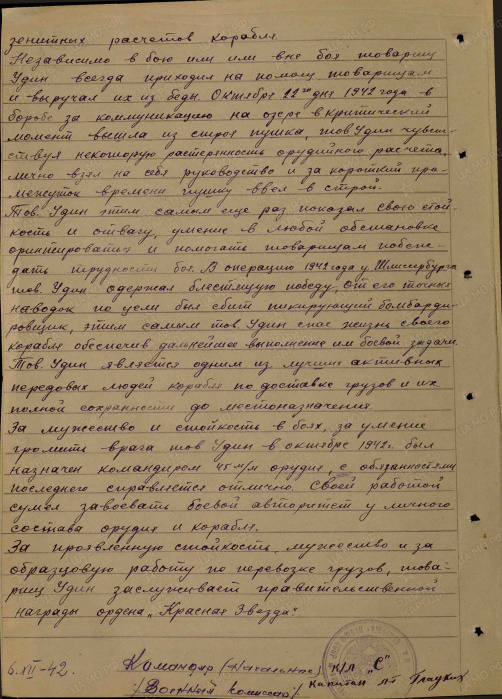 зенитных расчетов корабля.
Независимо в бою или или вне боя товарищ
Удин всегда приходил на помощь товарищам
и выручал их из беды. Октября 22го дня 1942 года в
борьбе за коммуникацию на озере в критический
момент вышла из строя пушка, тов Удин чувст-
ствуя некоторую растерянность орудийного расчета,
лично взял на себя руководство и за короткий про-
межуток времени пушку ввел в строй.
Тов. Удин этим самым еще раз показал свою стой-
кость и отвагу, умение в любой обстановке
ориитироваться и помогать товарищам побеж-
дать трудности боя. В операцию 1942 года у Шлиссербурга
тов. Удин одержал блестящую победу. От его точных
наводок по цели был сбит пикирующий бомбарди-
ровщик, этим самым тов Удин спас жизнь своего
корабля обеспечив дальнейшее выполнение им боевой задачи.
Тов. Удин является одним из лучших активных
передовых людей корабля по доставке грузов и их
полной сохранности до местоназначения.
За мужество и стойкость в боях, за умение
громить врага тов Удин в октябре 1942г. был
назначен командиром 45 м/м орудия, с обязанностями
последнего справляется отлично. Своей работой
сумел завоевать боевой авторитет у личного
состава орудия и корабля.
За проявленную стойкость, мужество и за
образцовую работу по перевозке грузов, това-
рищ Удин заслуживает правительственной
награды ордена „Красная Звезда".
6.XII-42. Командир (Начальник) к/л „С"
/Военный комиссар/ Капитан лт Гладких